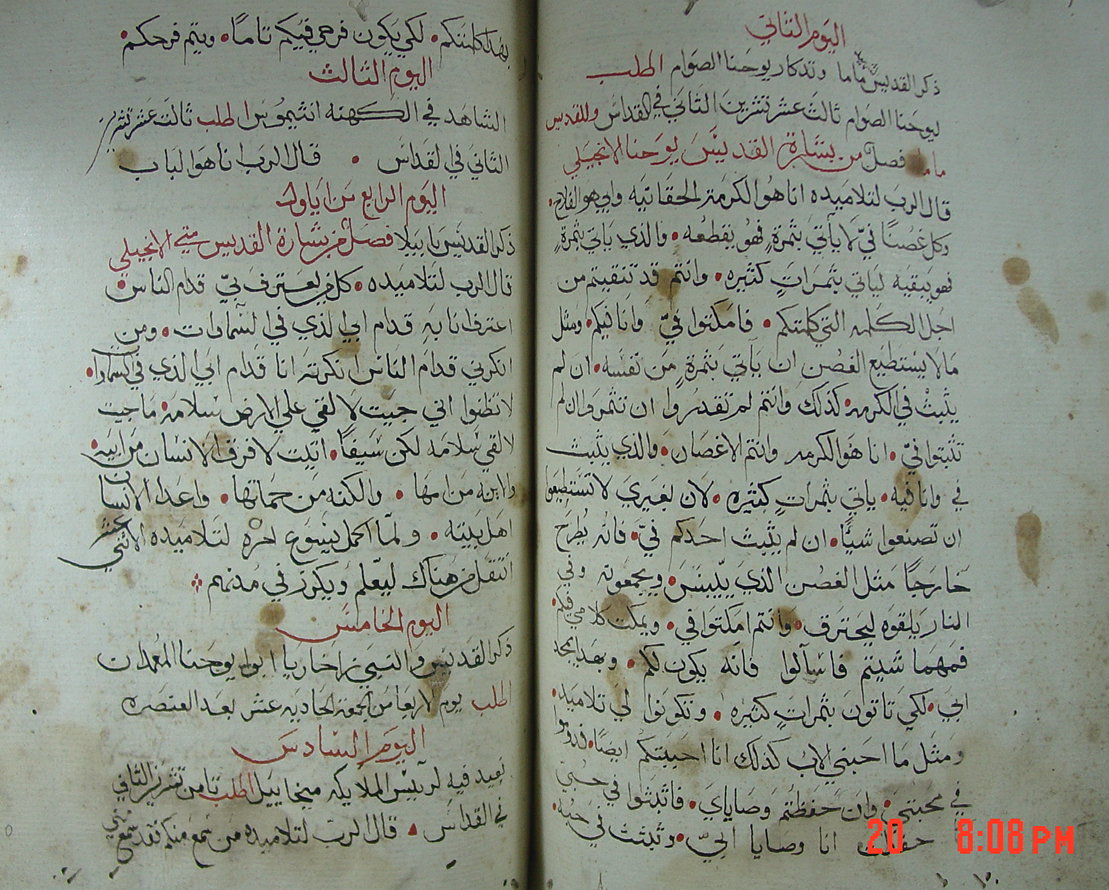 اليوم الثاني
ذكر القديس ماما وتدكار يوحنا الصوام الطلب
يوحنا الصوام ثالث عشر تشرين الثاني في القداس وللقديس
ماما فصل من بشارة القديس يوحنا الانجيلي
قال الرب لتلاميده انا هو الكرمة الحقانيه وابي هو الفلاح
وكل غصنًا فيّ لا يأتي بثمرةٍ فهو يقطعه والذي ياتي بثمرةٍ
فهو ينقيه لياتي بثمراتٍ كثيره وانتم قد تنقيتم من
اجل الكلمه التي كلمتكم فامكثوا فيّ وانا فيكم ومثل
ما لا يستطيع الغصن ان يأتي بثمرةٍ من نفسه ان لم
يثبث في الكرمه كذلك وانتم لم تقدروا ان تثمروا ان لم
تثبتوا فيّ انا هو الكرمه وانتم الاغصان والذي يثبث
في وانا فيه ياتي بثمراتٍ كثيره لان بغيري لا تستطيعوا
ان تصنعوا شيئًا ان لم يثبث احدكم فيّ فانه يُطرح
خارجًا مثل الغصن الذي ييبس ويجمعونه وفي
النار يلقوه ليحترق وانتم امكثوا في ويمكث كلامي فيكم
فمهما شيتم فاسألوا فانه يكون لكم وبهدا يمجد
ابي لكي تاتون بثمراتٍ كثيره وتكونوا لي تلاميد
ومثل ما احبني الاب كدلك انا احببتكم ايضًا فدوموا
في محبتي وان حفظتم وصاياي فاثبثوا في حبي
حفظت انا وصايا ابيّ وثبثت في حبه
بهدا كلمتكم لكي يكون فرحي فيكم تامًا ويتم فرحكم
اليوم الثالث
الشاهد في الكهنه انثيموس الطلب ثالث عشر تشرين
الثاني في لقداس قال الرب انا هو الباب
اليوم الرابع من ايلول
ذكر القديس بابيلا فصل من بشارة القديس متي الانجيلي
قال الرب لتلاميده كل من يعترف بيّ قدام الناس
اعترف انا به قدام ابي الذي في السماوات ومن
انكرني قدام الناس انكرته انا قدام ابي الذي في السماوات
لا تظنوا اني جيت لالقي علي الارض سلامه ما جيت
لالقي سلامه لكن سيفًا اتيت لافرق الانسان من ابيه
والابنه من امها والكنه من حماتها واعدا الانسان
اهل بيته ولما اكمل يسوع امره لتلاميده الاثني عشر
انتقل من هناك ليعلم ويكرز في مدنهم
اليوم الخامس
ذكر القديس والنبي زاخاريا ابو يوحنا المعمدان
اطلب يوم الاربعا من الجمعة الحاديه عشر بعد العنصره
اليوم السادس
نعيد فيه لرييس الملايكه ميخاييل الطلب تامن تشرين الثاني
في القداس قال الرب لتلاميده من سمع منكم فقد سمع مني
20 8:08 PM